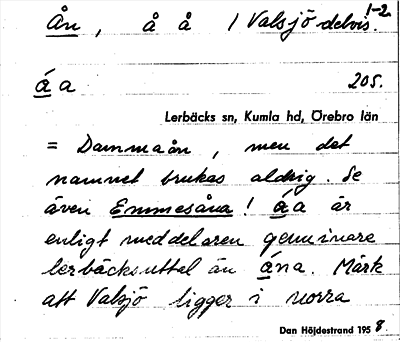 Ån, å å / Valsjö delvis. 1-2
áa 205.
Lerbäcks sn, Kumla hd, Örebro län
= Dammaån, men det
namnet brukas aldrig. Se
även Emmesåna! áa är
enligt meddelaren genuinare
lerbäcksuttal än ána. Märk
att Valsjö ligger i norra
Dan Höjdestrand 1958.